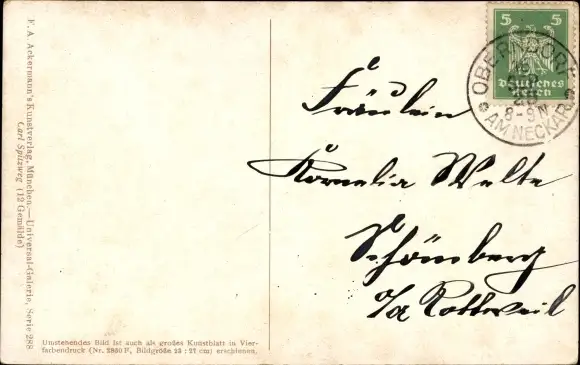 F. A. Ackermann's Kunstverlag, München.—Universal-Galerie, Serie 288
Carl Spitzweg (12 Gemälde)
Umstehendes Bild ist auch als großes Kunstblatt in Vier-
farbendruck (Nr. 2850 F, Bildgröße 25 : 27 cm) erschienen.
5 5
Deutsches
Reich
OBERNDORF
8-9 N
AM NECKAR
Fräulein
Kornelia Welte
Schömberg
o/a Rottweil